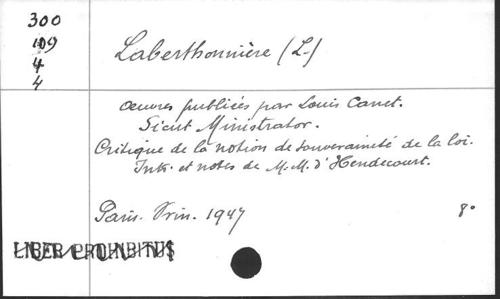 300
109
4
4
Laberthonnière (L.)
Oeuvres publiées par Louis Canet.
Sicut Ministrator.
Critique de la notion de souveraineté de la loi.
Intr. et notes de M.M. d'Hendecourt.
Paris. Vrin. 1947
8°
LIBER PROHIBITUS